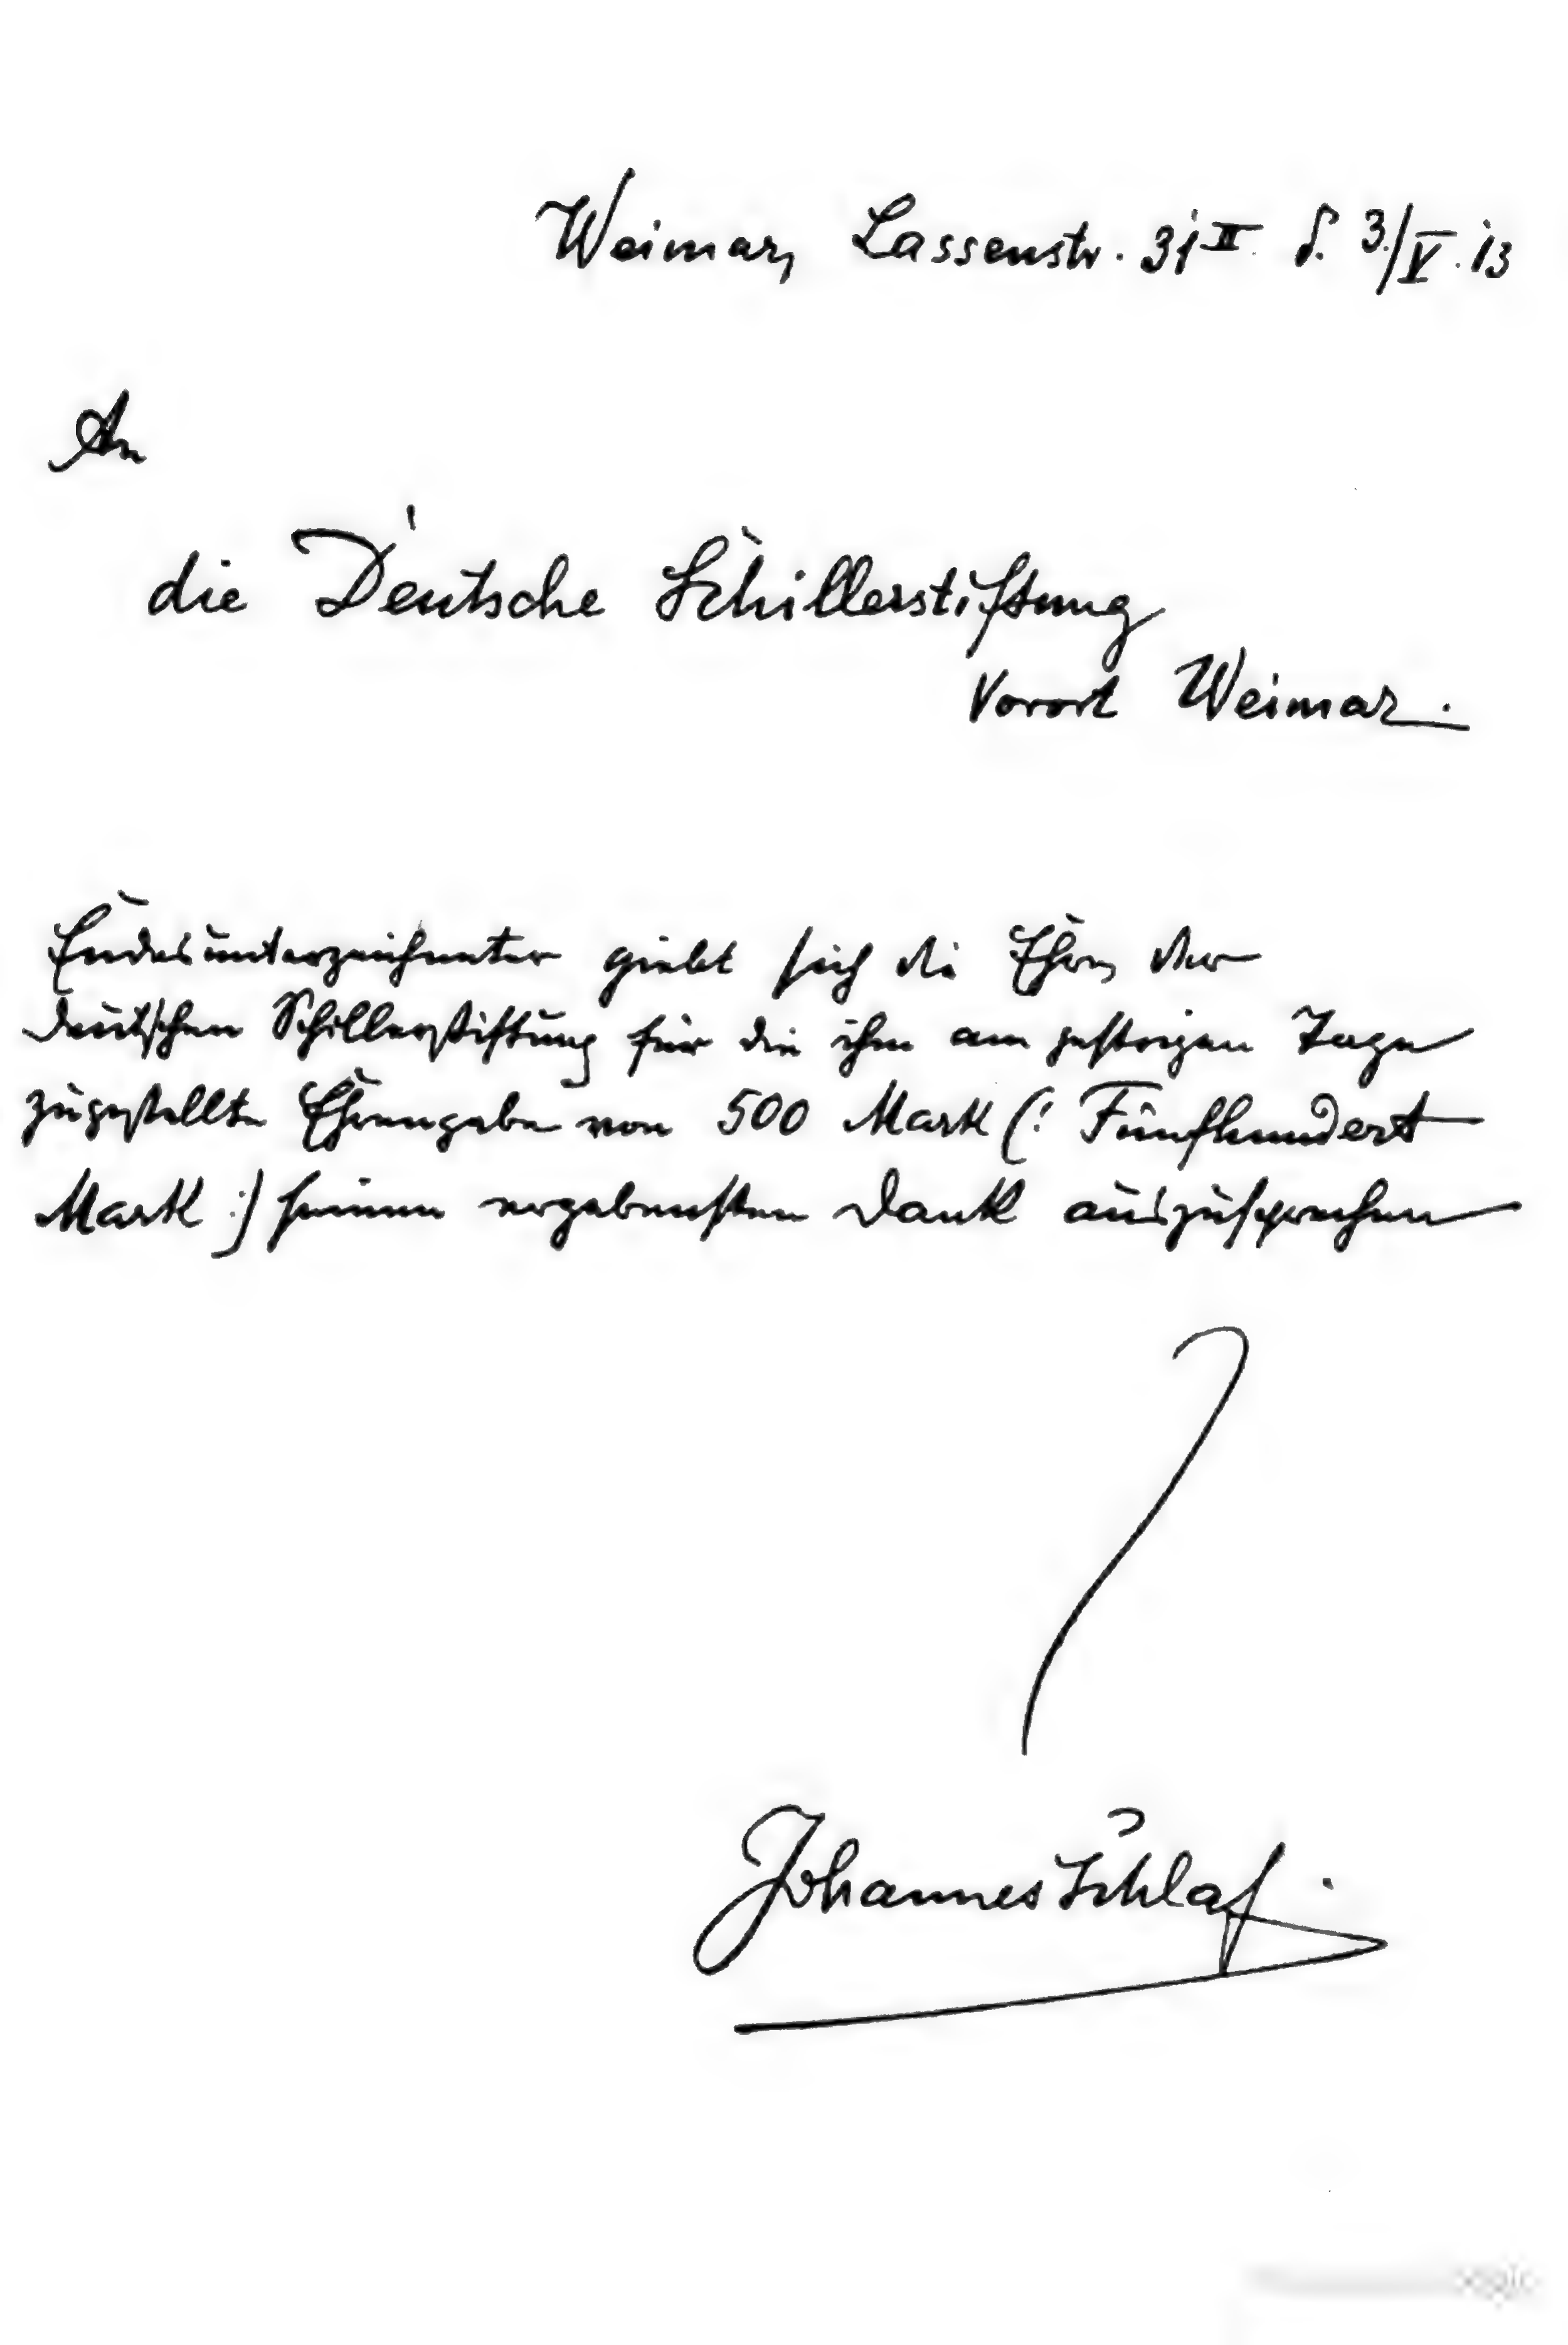 Weimar, Lassenstr. 31 II. d. 3./V. 13
An
die Deutsche Schillerstiftung
Vorort Weimar.
Endesunterzeichneter giebt sich die Ehre, der
deutschen Schillerstiftung für die ihm am gestrigen Tage
zugestellte Ehrengabe von 500 Mark (: Fünfhundert
Mark :) seinen ergebensten Dank auszusprechen
Johannes Schlaf.